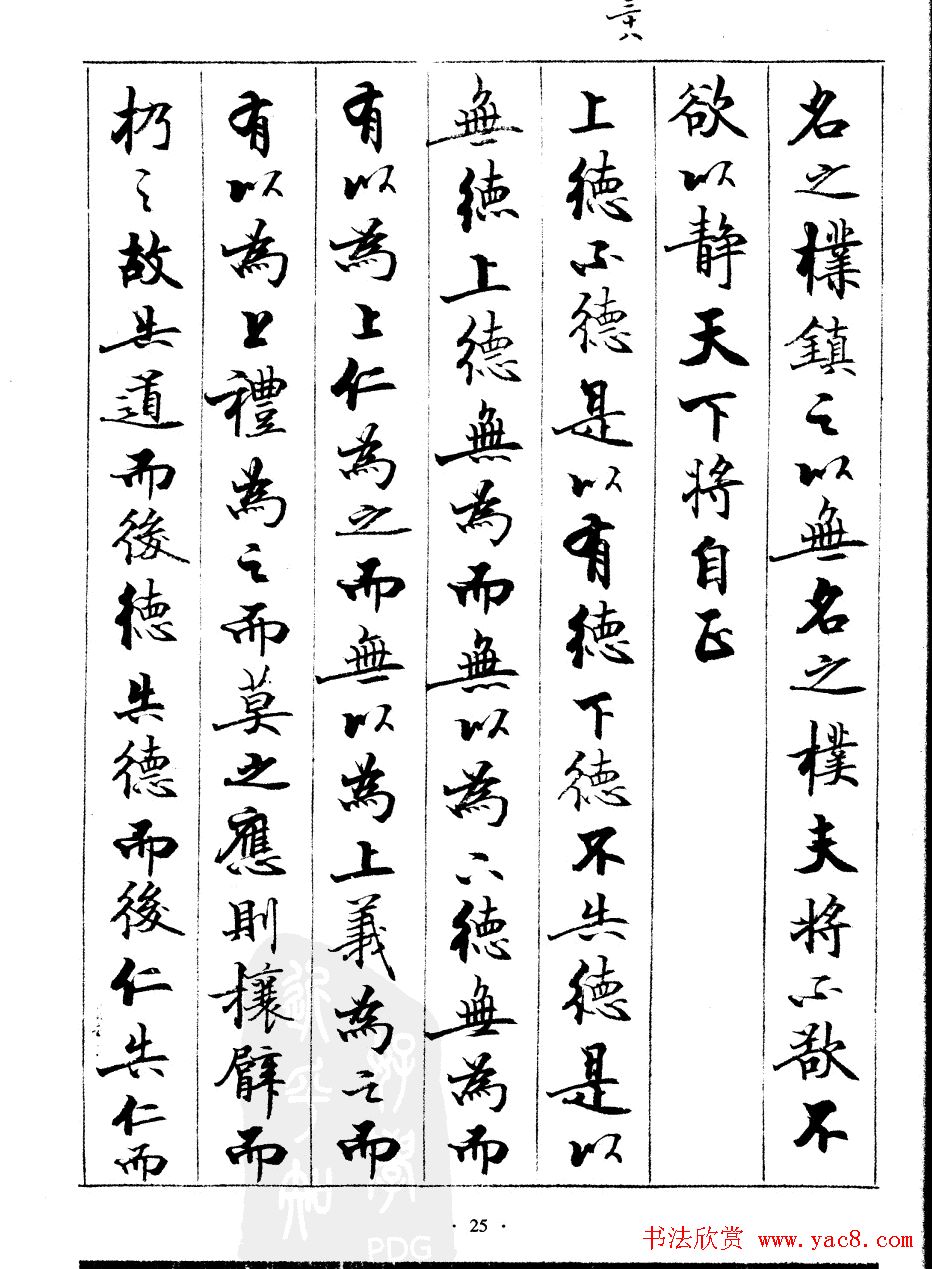 三十八
名之樸鎮之以無名之樸夫將不欲不
欲以静天下將自正
上德不德是以有德下德不失德是以
無德上德無為而無以為下德無為而
有以為上仁為之而無以為上義為之而
有以為上禮為之而莫之應則攘臂而
扔之故失道而後德失德而後仁失仁而
· 25 ·
PDG
书法欣赏 www.yac8.com